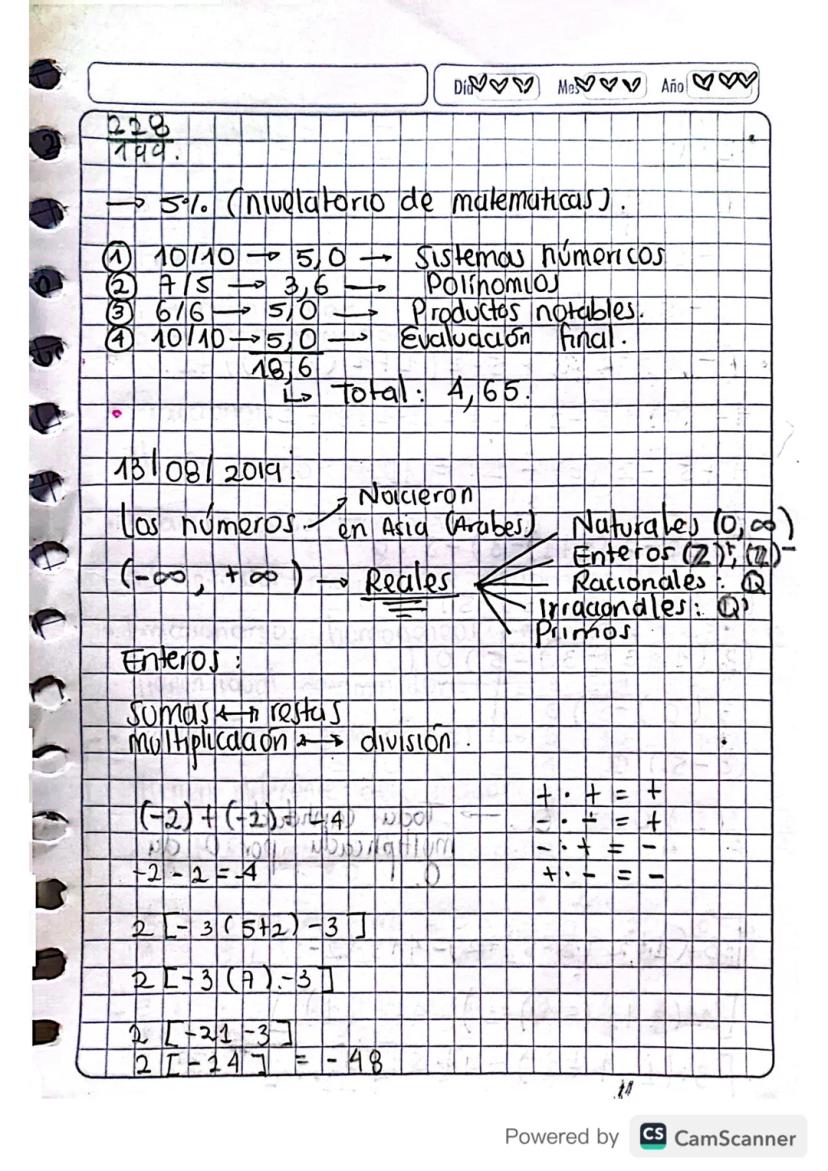 Día Mes Año
228
199.
→ 5% (nivelatorio de matematicas).
① 10/10 → 5,0 → Sistemas númericos
② 7/5 → 3,6 → Polinomios
③ 6/6 → 5,0 → Productos notables.
④ 10/10 → 5,0 → Evaluación final.
18,6
↳ Total: 4,65.
13/08/2019
Los números → Nacieron en Asia (Arabes)
(-∞, +∞) → Reales
Naturales (0, ∞)
Enteros (Z)⁺, (Z)⁻
Racionales: Q
Irracionales: Q'
Primos
Enteros:
sumas ↔ restas
multiplicación ↔ división.
(-2) + (-2) = -4
-2 - 2 = -4
+ · + = +
- · - = +
- · + = -
+ · - = -
2 [-3 (5+2) -3]
2 [-3 (7) -3]
2 [-21 -3]
2 [-24] = -48
Powered by CS CamScanner